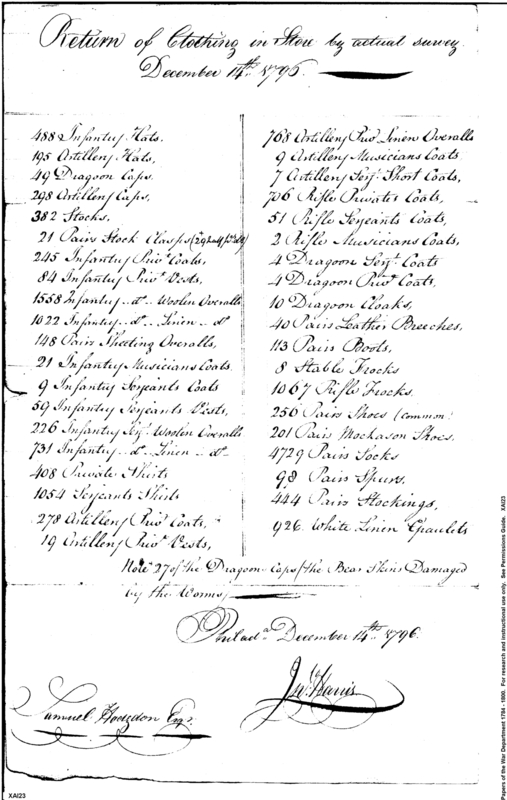 Return of Clothing in Store by actual survey
December 14th. 1796.
488 Infantry Hats.
195 Artillery Hats,
49 Dragoon Caps,
298 Artillery Caps,
382 Stocks.
21 Pairs Stock Clasps
245 Infantry Privt. Coats,
84 Infantry Privt. Vests,
1558 Infantry .. do.. Woolen Overalls
1022 Infantry .. do.. Linen .. do
148 Pairs Sheeting Overalls,
21 Infantry Musicians Coats.
9 Infantry Serjeants Coats
59 Infantry Serjeants Vests,
226 Infantry Serjt. Woolen Overalls
731 Infantry .. do.. Linen .. do..
408 Private Shirts
1054 Serjeants Shirts
278 Artillery Privt. Coats,
19 Artillery Privt. Vests,
768 Artillery Privt. Linen Overalls
9 Artillery Musicians Coats
7 Artillery Serjt. Short Coats,
706 Rifle Privates Coats,
51 Rifle Serjeants Coats,
2 Rifle Musicians Coats,
4 Dragoon Serjt. Coats
4 Dragoon Privt. Coats,
10 Dragoon Cloaks,
40 Pairs Leather Breeches,
113 Pairs Boots,
8 Stable Frocks
1067 Rifle Frocks.
256 Pairs Shoes (common)
201 Pairs Mockason Shoes.
4729 Pairs Socks
98 Pairs Spurs.
444 Pairs Stockings,
926. White Linen
Note 27 of the Dragoon Caps (the Bear Skins Damaged
by the Worms)
Philada. December 14th. 1796.
Jno. Harris
Samuel Hodgdon Esqr.
XAI23
Papers of the War Department 1784 - 1800. For research and instructional use only. See Permissions Guide. XAI23